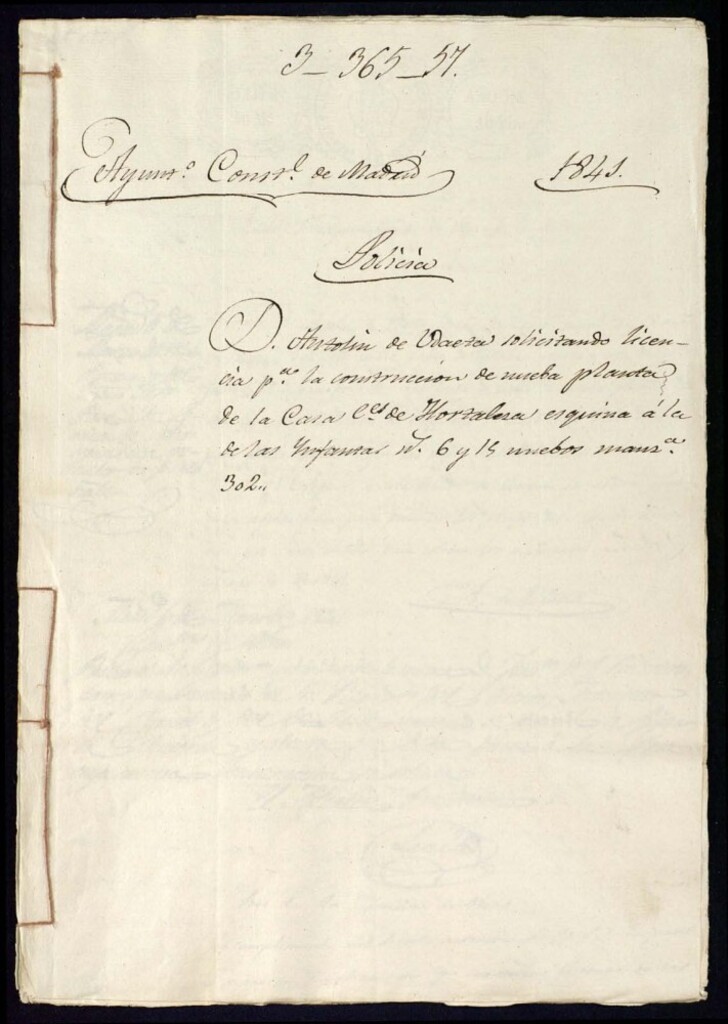 3_365_57.
Ayunt.º Const.l de Madrid 1841.
Policia
D. Antolin de Udaeta solicitando licen-
cia p.ª la construccion de nueba planta
de la Casa C.es de Hortaleza esquina á la
de las Infantas n.º 6 y 15 nuebos manz.ª
302..